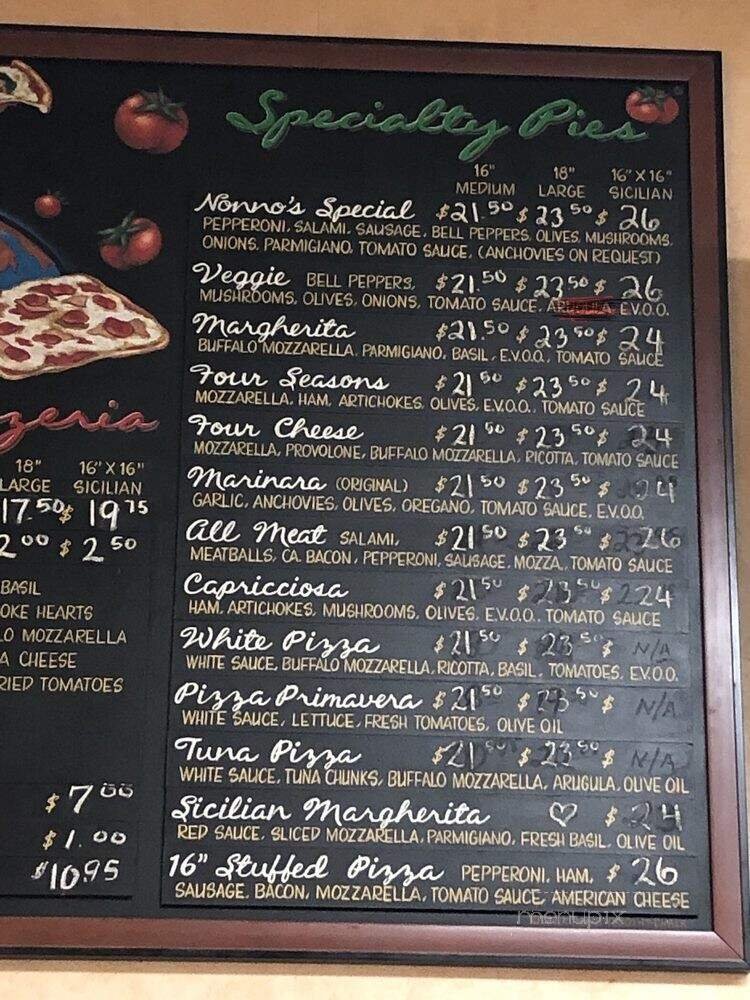 Specialty Pies
16" 18" 16" X 16"
MEDIUM LARGE SICILIAN
Nonno's Special $21.50 $23.50 $26
PEPPERONI, SALAMI, SAUSAGE, BELL PEPPERS, OLIVES, MUSHROOMS,
ONIONS, PARMIGIANO, TOMATO SAUCE, (ANCHOVIES ON REQUEST)
Veggie BELL PEPPERS, $21.50 $23.50 $26
MUSHROOMS, OLIVES, ONIONS, TOMATO SAUCE, ARUGULA, E.V.O.O.
Margherita $21.50 $23.50 $24
BUFFALO MOZZARELLA, PARMIGIANO, BASIL, E.V.O.O., TOMATO SAUCE
Four Seasons $21.50 $23.50 $24
MOZZARELLA, HAM, ARTICHOKES, OLIVES, E.V.O.O., TOMATO SAUCE
Four Cheese $21.50 $23.50 $24
MOZZARELLA, PROVOLONE, BUFFALO MOZZARELLA, RICOTTA, TOMATO SAUCE
Marinara (ORIGINAL) $21.50 $23.50 $24
GARLIC, ANCHOVIES, OLIVES, OREGANO, TOMATO SAUCE, E.V.O.O.
All Meat SALAMI, $21.50 $23.50 $26
MEATBALLS, CA. BACON, PEPPERONI, SAUSAGE, MOZZA, TOMATO SAUCE
Capricciosa $21.50 $23.50 $24
HAM, ARTICHOKES, MUSHROOMS, OLIVES, E.V.O.O., TOMATO SAUCE
White Pizza $21.50 $23.50 $ N/A
WHITE SAUCE, BUFFALO MOZZARELLA, RICOTTA, BASIL, TOMATOES, E.V.O.O.
Pizza Primavera $21.50 $23.50 $ N/A
WHITE SAUCE, LETTUCE, FRESH TOMATOES, OLIVE OIL
Tuna Pizza $21.50 $23.50 $ N/A
WHITE SAUCE, TUNA CHUNKS, BUFFALO MOZZARELLA, ARUGULA, OLIVE OIL
Sicilian Margherita ♡ $24
RED SAUCE, SLICED MOZZARELLA, PARMIGIANO, FRESH BASIL, OLIVE OIL
16" Stuffed Pizza PEPPERONI, HAM, $26
SAUSAGE, BACON, MOZZARELLA, TOMATO SAUCE, AMERICAN CHEESE
zeria
18" 16" X 16"
LARGE SICILIAN
17.50 $ 19.75
2.00 $ 2.50
BASIL
OKE HEARTS
LO MOZZARELLA
A CHEESE
RIED TOMATOES
$7.00
$1.00
$10.95
menupix